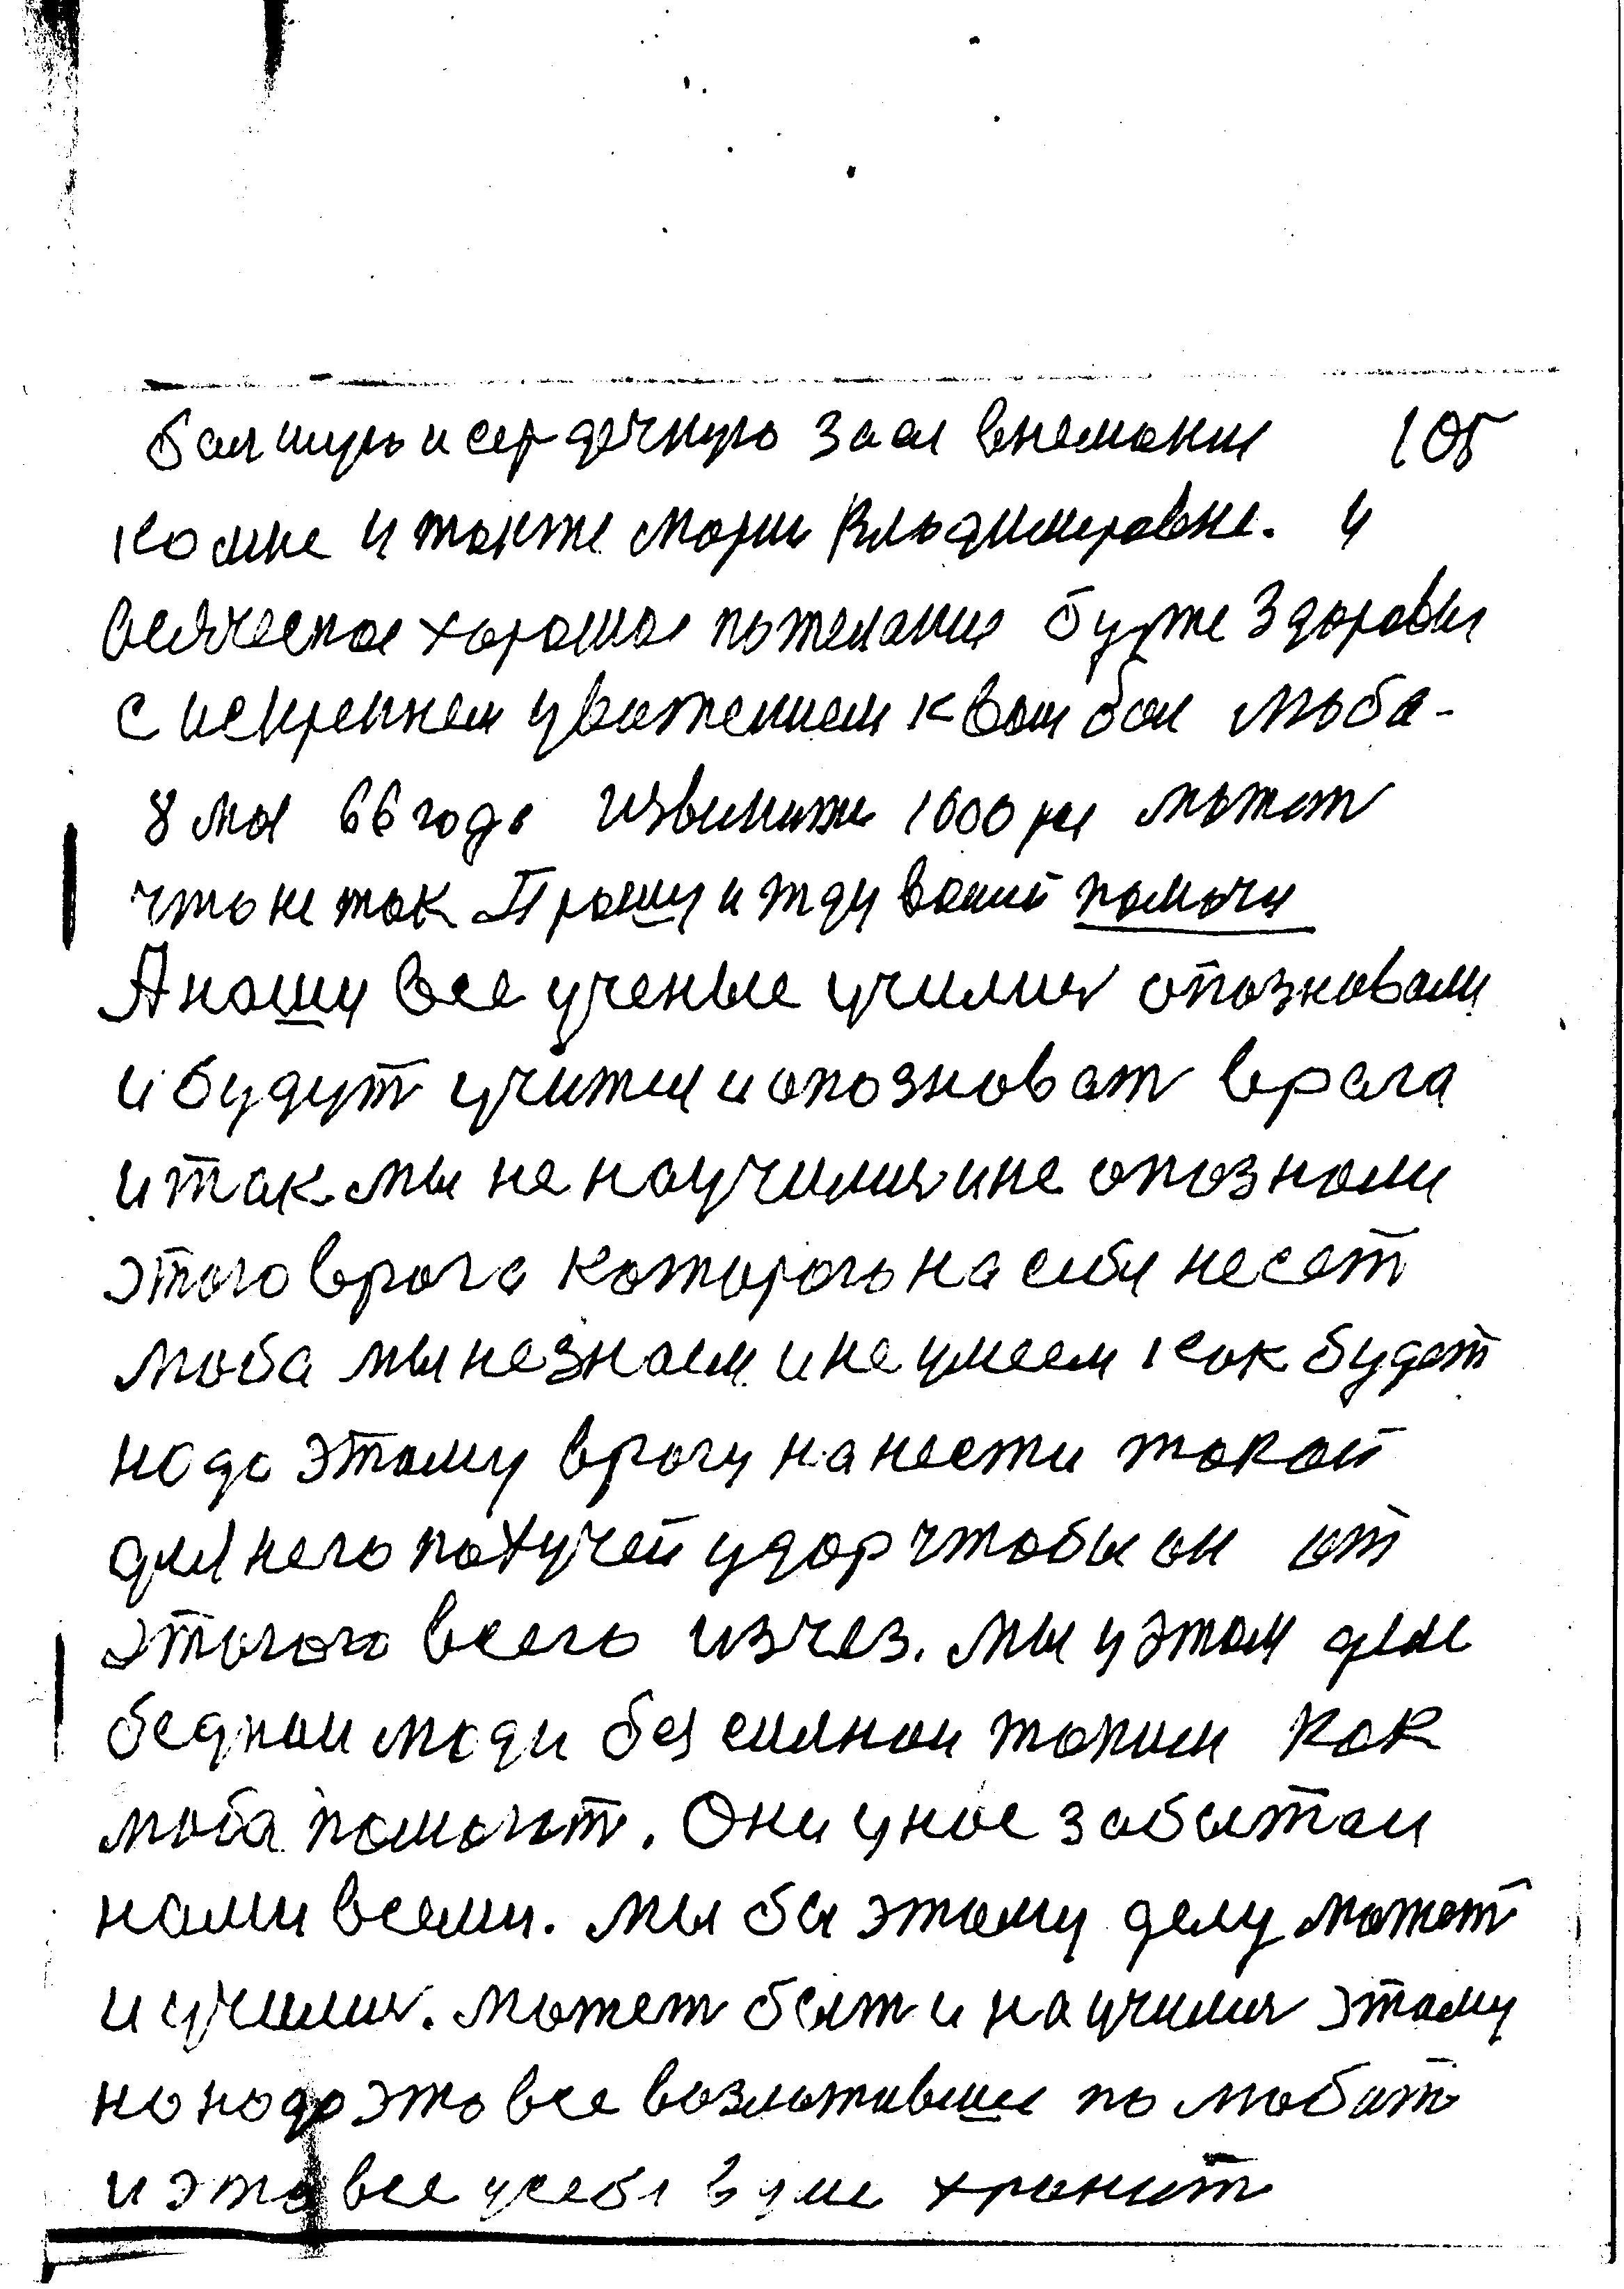 болшую и сердечную за ее внемание 105
ко мне и также Марии Владимировне. и
всяческое хорошое пожелание будте здоровы
с искреннем уважением к вам бои Люба-
8 мая 66 года извините 1000 раз может
что не так Прошу и жду вашей помочи
А нашы все ученые училися опозновали
и будут учится и опозноват врага
и так мы не научилися и не опознали
этого врага которого на себя несет
Люба мы не знаем и не умеем как будет
надо этому врагу нанести такой
для него похучей удар чтобы он от
этого всего изчез. мы у этом деле
беднои люди без силнои таким как
люба помогат. Они у нас забытаи
нами всеми. мы бы этому делу может
и училися. может быт и научилися этому
но надо это все возложившы полюбит
и это все у себя в уме хранит